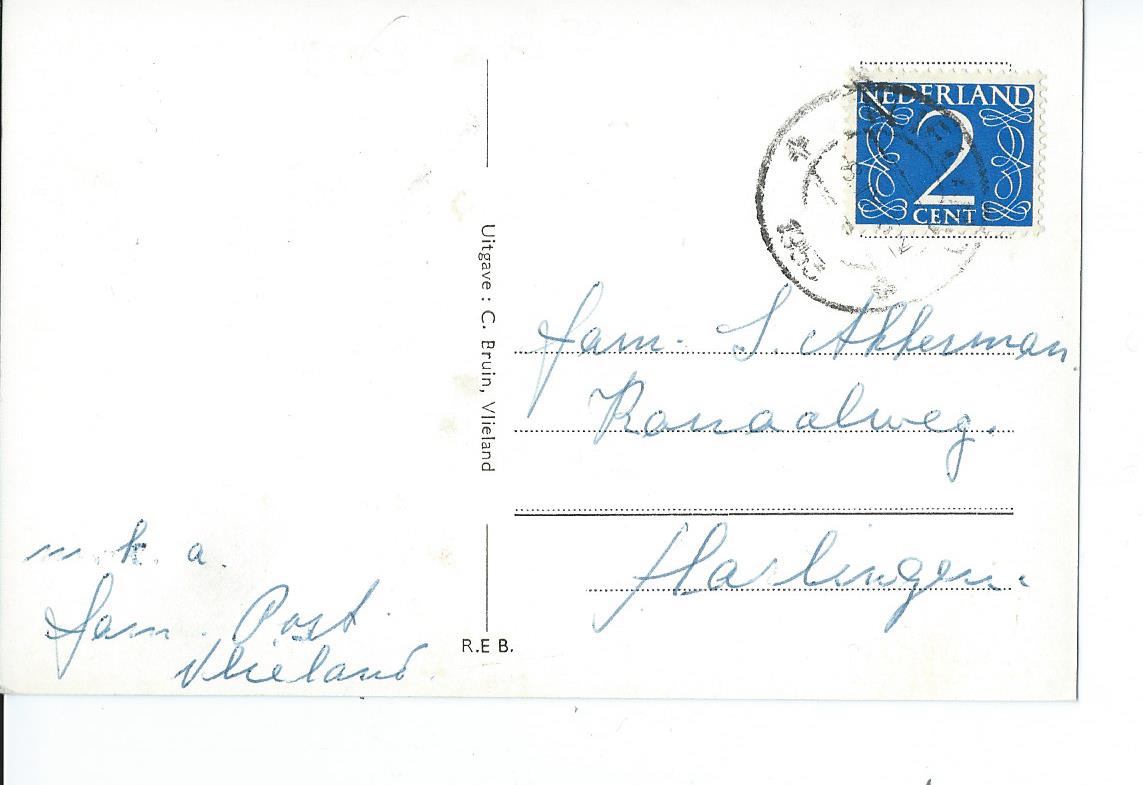 NEDERLAND
2
CENT
1951
Uitgave : C. Bruin, Vlieland
Fam. S. Akkerman
Kanaalweg.
Harlingen.
m. k. a.
Fam. Post
Vlieland.
R.E B.